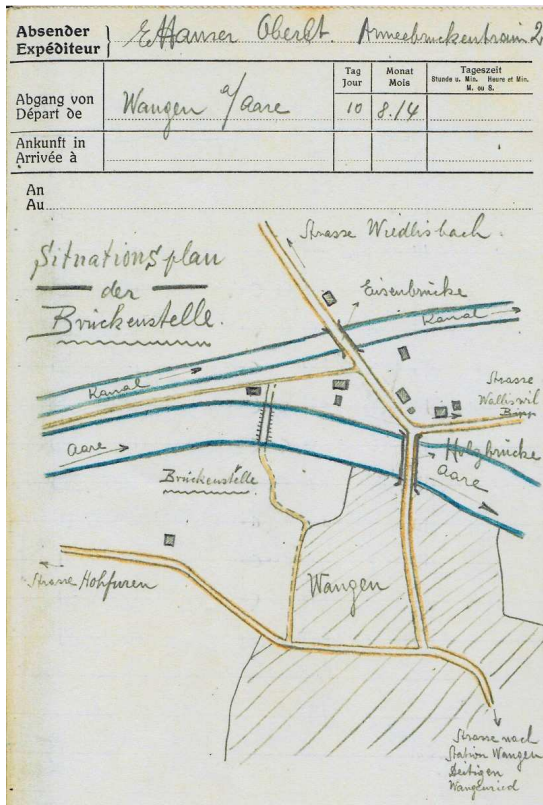 Absender
Expéditeur
E Hauser Oberlt. Armeebrückentrain 2
Tag
Jour
Monat
Mois
Tageszeit
Stunde u. Min. Heure et Min.
M. ou S.
Abgang von
Départ de
Wangen a/Aare
10
8.14
Ankunft in
Arrivée à
An
Au
Situationsplan
der
Brückenstelle.
Strasse Wiedlisbach.
Eisenbrücke
Kanal
Kanal
Strasse
Walliswil
Bipp
Aare
Holzbrücke
Aare
Brückenstelle
Strasse Hohfuren
Wangen
Strasse nach
Station Wangen
Deitigen
Wangenried